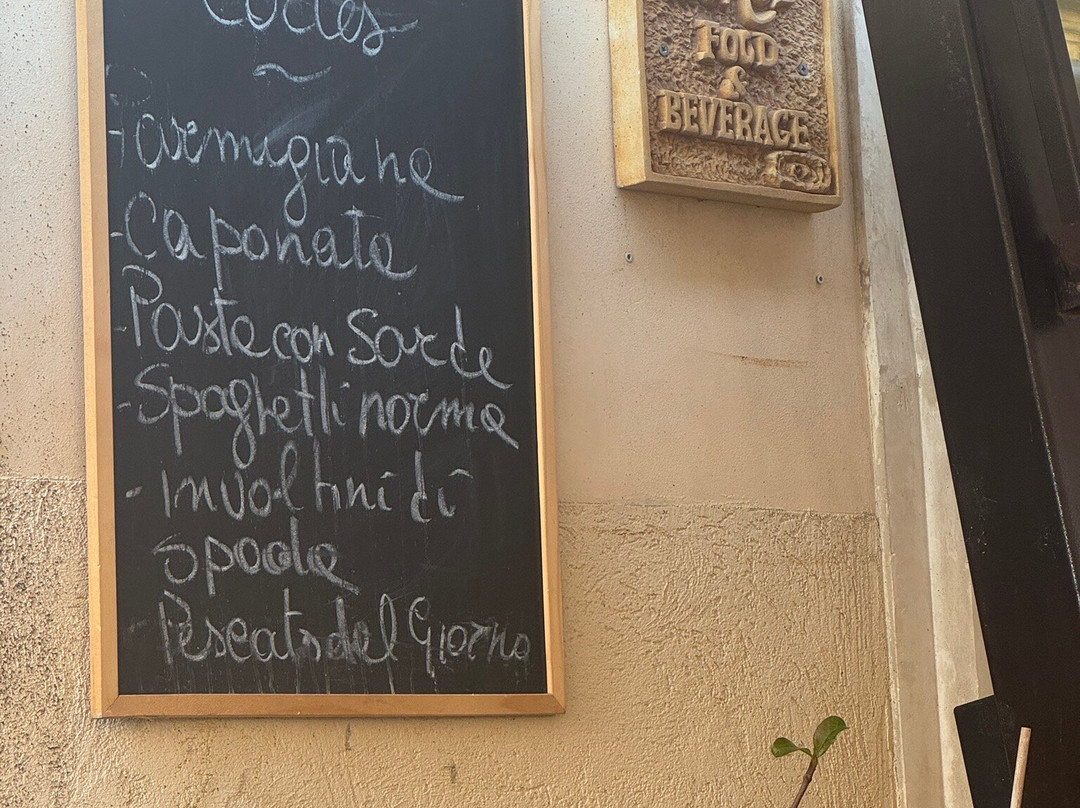 Cocles
- Parmigiana
- Caponata
- Pasta con Sarde
- Spaghetti norma
- Involtini di
Spada
- Pescato del Giorno
FOOD
&
BEVERAGE